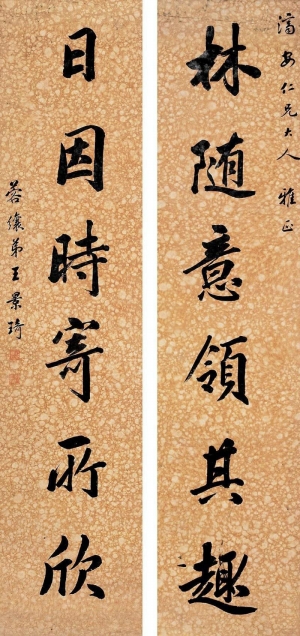 濟安仁兄大人 雅正
林随意領其趣
日因時寄所欣
蓉弟王景琦